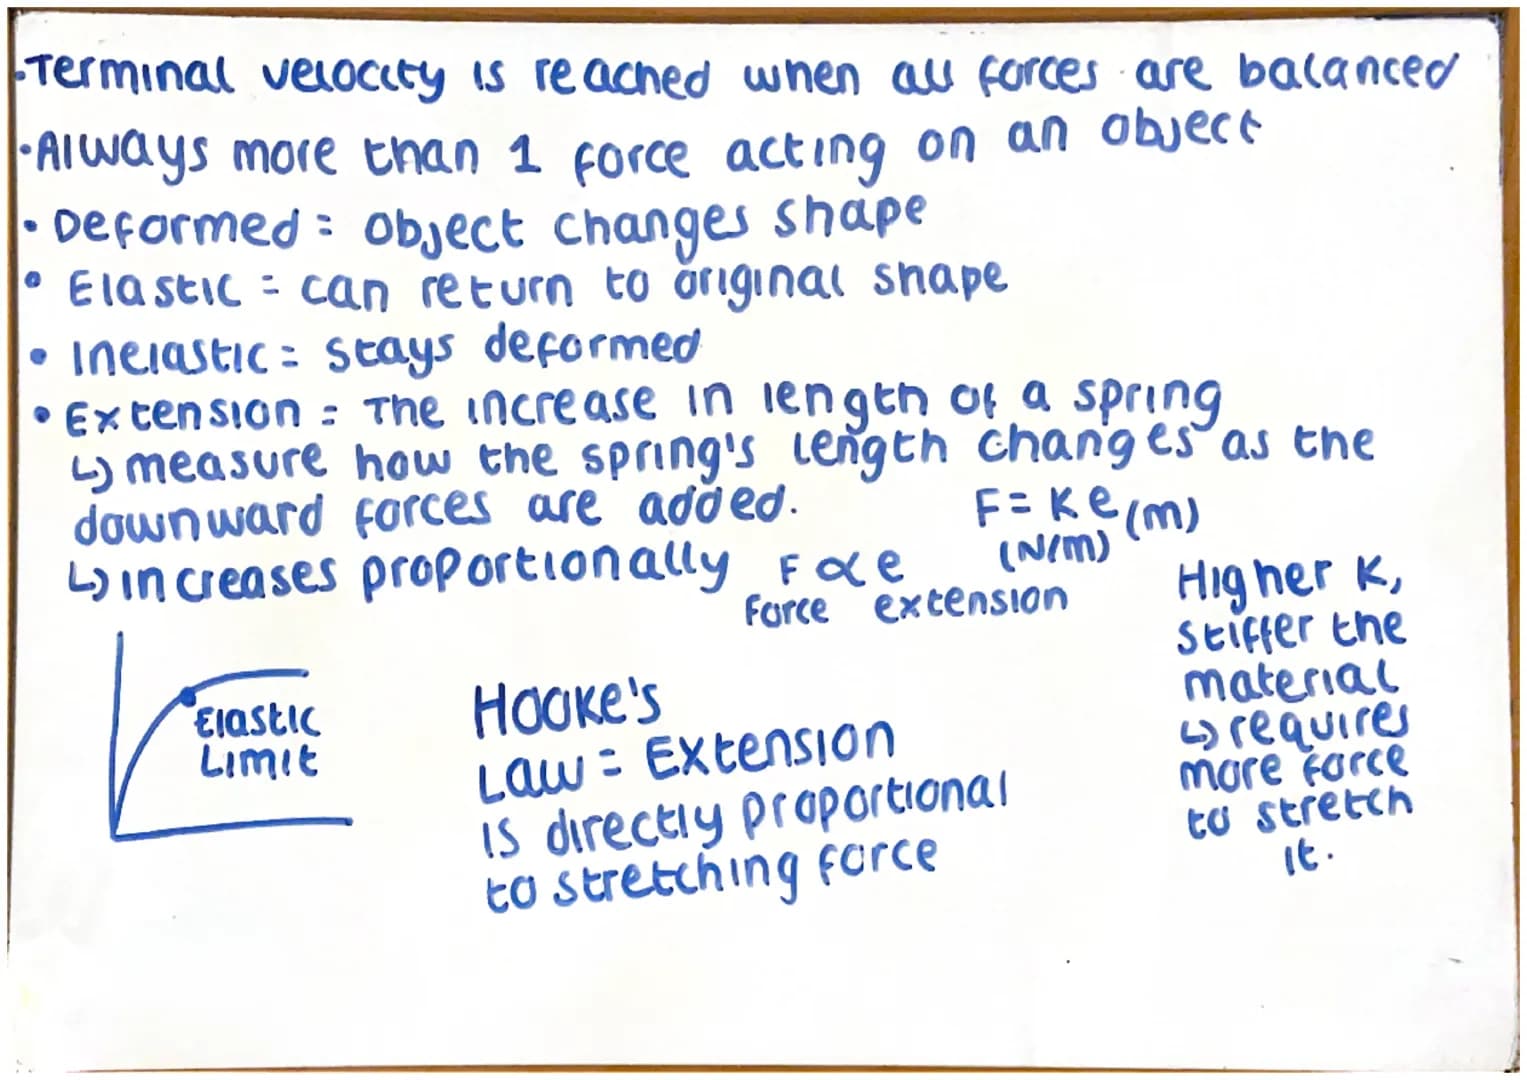 ·Terminal velocity is reached when all forces are balanced
·Always more than 1 force acting on an object
· Deformed = object changes shape
• Elastic = can return to original shape
• Inelastic = stays deformed
• Extension = The increase in length of a spring
↳ measure how the spring's length changes as the
downward forces are added.
F = K e (m)
(N/m)
↳ increases proportionally F ∝ e
Force extension
Elastic
Limit
Hooke's
Law = Extension
is directly proportional
to stretching force
Higher K,
stiffer the
material
↳ requires
more force
to stretch
it.